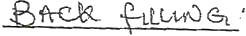 BACK FILLING: